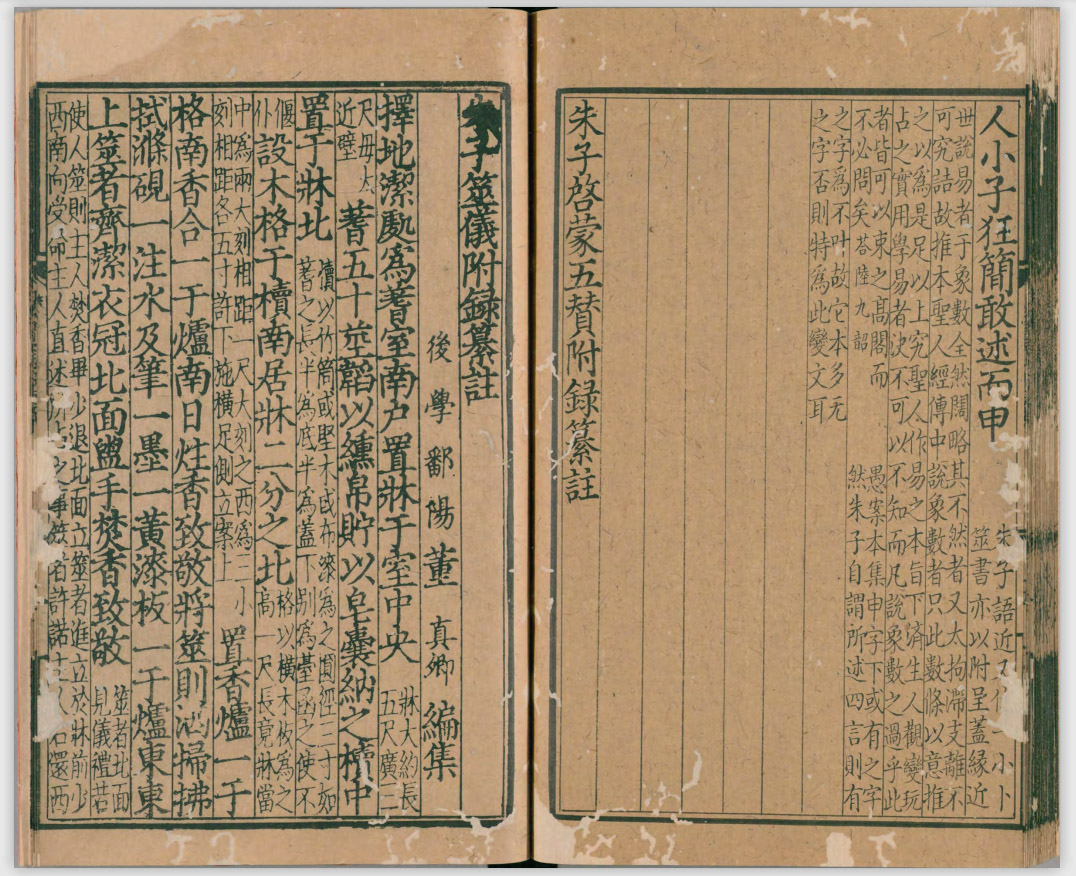 人小子狂簡敢述而申
朱子語近又 小卜
筮書亦以附呈蓋緣近
世說易者于象數全然闊略其不然者又太拘滯支離不
可究詰故推本聖人經傳中說象數者只此數條以意推
之以為是足以上究聖人作易之本旨下濟生人觀變玩
占之實用學易者決不可以不知而凡說象數之過乎此
者皆可以束之高閣而
不必問矣答陸九韶
愚案本集申字下或有之字
然朱子自謂所述四言則有
之字為不叶故它本多无
之字否則特為此變文耳
朱子啓蒙五贊附録纂註
朱子筮儀附録纂註
後學鄱陽董真卿編集
擇地潔處為蓍室南戶置牀于室中央
牀大約長
五尺廣三
尺毋太
近壁
蓍五十莖韜以纁帛貯以皂囊納之櫝中
置于牀北
櫝以竹筒或堅木或布漆為之圓徑三寸如
蓍之長半為底半為蓋下别為臺函之使不
偃
仆
設木格于櫝南居牀二分之北
格以横木板為之
高一尺長竟牀當
中為兩大刻相距一尺大刻之西為三小
刻相距各五寸許下施横足側立案上
置香爐一于
格南香合一于爐南日炷香致敬將筮則洒掃拂
拭滌硯一注水及筆一墨一黃漆板一于爐東東
上筮者齊潔衣冠北面盥手焚香致敬
筮者北面
見儀禮若
使人筮則主人焚香畢少退北面立筮者進立於牀前少
西南向受命主人直述所占之事筮者許諾主人右還西